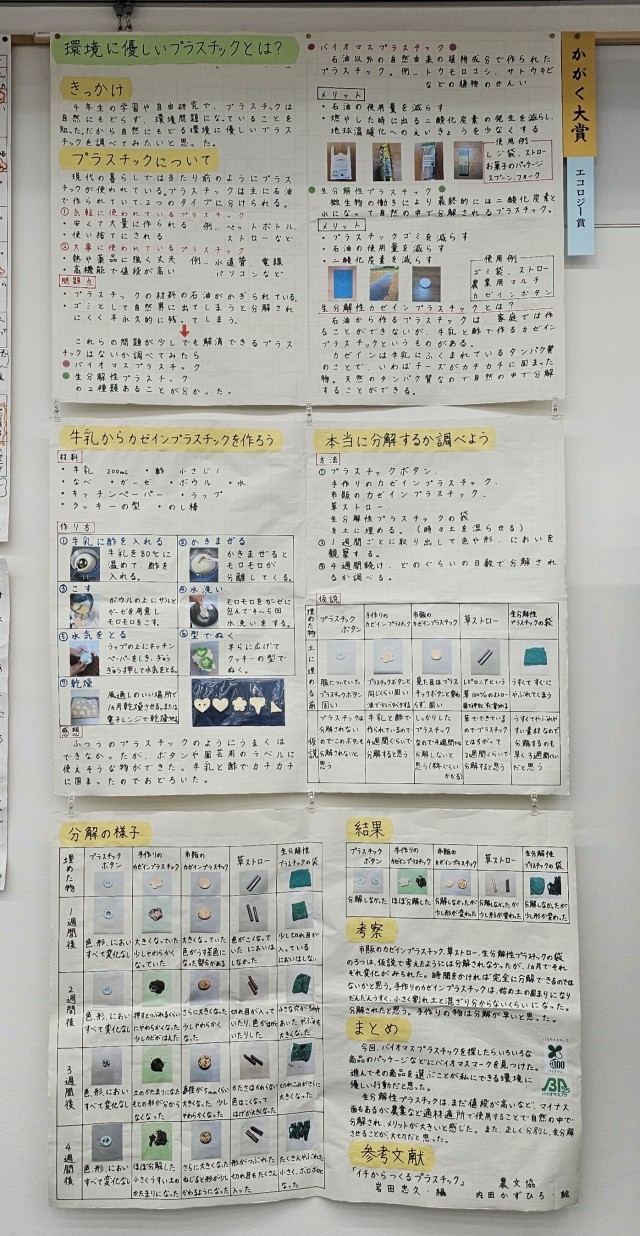 環境に優しいプラスチックとは?
きっかけ
4年生の学習や自由研究で、プラスチックは
自然にもどらず、環境問題になっていることを
知った。だから自然にもどる環境に優しいプラス
チックを調べてみたいと思った。
プラスチックについて
現代の暮らしでは当たり前のようにプラスチ
ックが使われている。プラスチックは主に石油
で作られていて、2つのタイプに分けられる。
①気軽に使われているプラスチック
・安くて大量に作れる 例…ペットボトル、
使い捨てにされる ストローなど
②大事に使われているプラスチック
・熱や薬品に強く丈夫 例…水道管 電線
・高機能で値段が高い パソコンなど
問題点
・プラスチックの材料の石油がかぎられている。
・ゴミとして自然界に出てしまうと分解され
にくく半永久的に残ってしまう。
これらの問題が少しでも解消できるプラス
チックはないか調べてみたら
●バイオマスプラスチック
●生分解性プラスチック
の2種類あることが分かった。
●バイオマスプラスチック●
石油以外の自然由来の植物成分で作られた
プラスチック。例…トウモロコシ、サトウキビ
などの植物のせんい
メリット
・石油の使用量を減らす
・燃やした時に出る二酸化炭素の発生を減らし、
地球温暖化へのえいきょうを少なくする
使用例
レジ袋、ストロー
お菓子のパッケージ
スプーン、フォーク
●生分解性プラスチック●
微生物の働きにより最終的には二酸化炭素と
水になって自然の中で分解されるプラスチック。
メリット
・プラスチックゴミを減らす
・石油の使用量を減らす
・二酸化炭素を減らす
使用例
ゴミ袋、ストロー
農業用マルチ
カゼインボタン
生分解性カゼインプラスチックとは?
石油から作るプラスチックは、家庭では作
ることができないが、牛乳と酢で作るカゼイン
プラスチックというものがある。
カゼインは牛乳にふくまれているタンパク質
のことで、いわばチーズがカチカチに固まった
物。天然のタンパク質なので自然の中で分解
することができる。
かがく大賞
エコロジー賞
牛乳からカゼインプラスチックを作ろう
材料
・牛乳 200mL ・酢 小さじ1
・なべ ・ガーゼ ・ボウル ・水
・キッチンペーパー ・ラップ
・クッキーの型 ・のし棒
作り方
①牛乳に酢を入れる
牛乳を80℃に
温めて、酢を
入れる。
②かきまぜる
かきまぜると
モロモロが
分離してくる。
③こす
ボウルの上にザルと
ガーゼを用意し、
モロモロをこす。
④水洗い
モロモロをガーゼに
包んで4〜5回
水洗いをする。
⑤水気をとる
ラップの上にキッチン
ペーパーをしき、ぎゅう
ぎゅう押して水気をとる。
⑥型でぬく
平らに広げて
クッキーの型で
ぬく。
⑦乾燥
風通しのいい場所で
1ヶ月乾燥させる。または
電子レンジで乾燥させる
感想
ふつうのプラスチックのようにうまくは
できなかったが、ボタンや園芸用のラベルに
使えそうな物ができた。牛乳と酢でカチカチ
に固まったのでおどろいた。
本当に分解するか調べよう
方法
①プラスチックボタン、
手作りのカゼインプラスチック、
市販のカゼインプラスチック、
草ストロー、
生分解性プラスチックの袋
を土に埋める。(時々土を湿らせる)
②1週間ごとに取り出して色や形、においを
観察する。
③4週間続け、どのぐらいの日数で分解され
るか調べる。
仮説
埋めた物
プラスチックボタン
手作りのカゼインプラスチック
市販のカゼインプラスチック
草ストロー
生分解性プラスチックの袋
土に埋める前
服についていた
プラスチックボタン
固い
プラスチックボタンと
同じくらい固い
見た目はプラスチックボタンと変わらず、固い
うすくてすぐに
やぶれてしまう
仮説
プラスチックは
分解されない
のでこのボタンも
分解されないと
思う
牛乳と酢で
作られているので
4週間ぐらいで
分解すると思う
しっかりした
プラスチック
なので4週間では
分解しないと
思う
草でできている
のでプラスチック
とはちがって
2週間ぐらいで
分解すると思う
うすくてやぶれや
すい素材なので
分解するのも
早く、3週間ぐらい
だと思う
分解の様子
埋めた物
プラスチックボタン
手作りのカゼインプラスチック
市販のカゼインプラスチック
草ストロー
生分解性プラスチックの袋
1週間後
色、形、におい
すべて変化なし
大きくなっていた
少しやわらかく
なっていた
大きくなっていた
色がうす茶色に
なった部分がある
色がこくなって
いた。においは
しなかった
少し切れ目が
入っている
においはしない
2週間後
色、形、におい
すべて変化なし
押すとつぶれるくらい
にやわらかくなった
少しカビがはえた
さらに大きくなった
少しやわらかく
なった
切れ目が入って
いたり、色がはげて
いたりした
小さな穴が3ヵ所
あいた やぶれも
大きくなった
3週間後
色、形、におい
すべて変化なし
土のかたまりになり
もとの形が分から
なくなった
直径が5mmくらい
大きくなった 少し
やわらかくなった
かたさはかわらない
色はこくなって
はげが大きくなった
切れこみがさらに
大きくなった
4週間後
色、形、におい
すべて変化なし
ほぼ分解した
小さくうすい土の
かたまりになった
さらに大きくなった
ねじると形が少し
かわるようになった
形がつぶれた
切れ目もたくさん
入った
たくさんやぶれた
小さく、ボロボロに
なった
結果
プラスチックボタン
手作りのカゼインプラスチック
市販のカゼインプラスチック
草ストロー
生分解性プラスチックの袋
分解しなかった
ほぼ分解した
分解しなかったが
少し形が変わった
分解しなかったが
少し形が変わった
分解しなかったが
少し形が変わった
考察
市販のカゼインプラスチック、草ストロー、生分解性プラスチックの袋
の3つは、仮説で考えたようには分解されなかったが、1ヵ月でそれ
ぞれ変化がみられた。時間をかければ完全に分解できるのでは
ないかと思う。手作りのカゼインプラスチックは、始め土の固まりになり
だんだんうすく、小さく割れ土と混ざり分からないくらいになった。
分解されたと思う。手作りの物は分解が早いと思った。
まとめ
今回、バイオマスプラスチックを探したらいろいろな
商品のパッケージなどにバイオマスマークを見つけた。
進んでその商品を選ぶことが私にできる環境に
優しい行動だと思った。
生分解性プラスチックは、まだ値段が高いなど、マイナス
面もあるが農業など適材適所で使用することで自然の中で
分解され、メリットが大きいと感じた。また、正しく分別し、生分解
させることが、大切だと思った。
100
参考文献
「イチからつくるプラスチック」 農文協
岩田忠久・編 内田かずひろ・絵